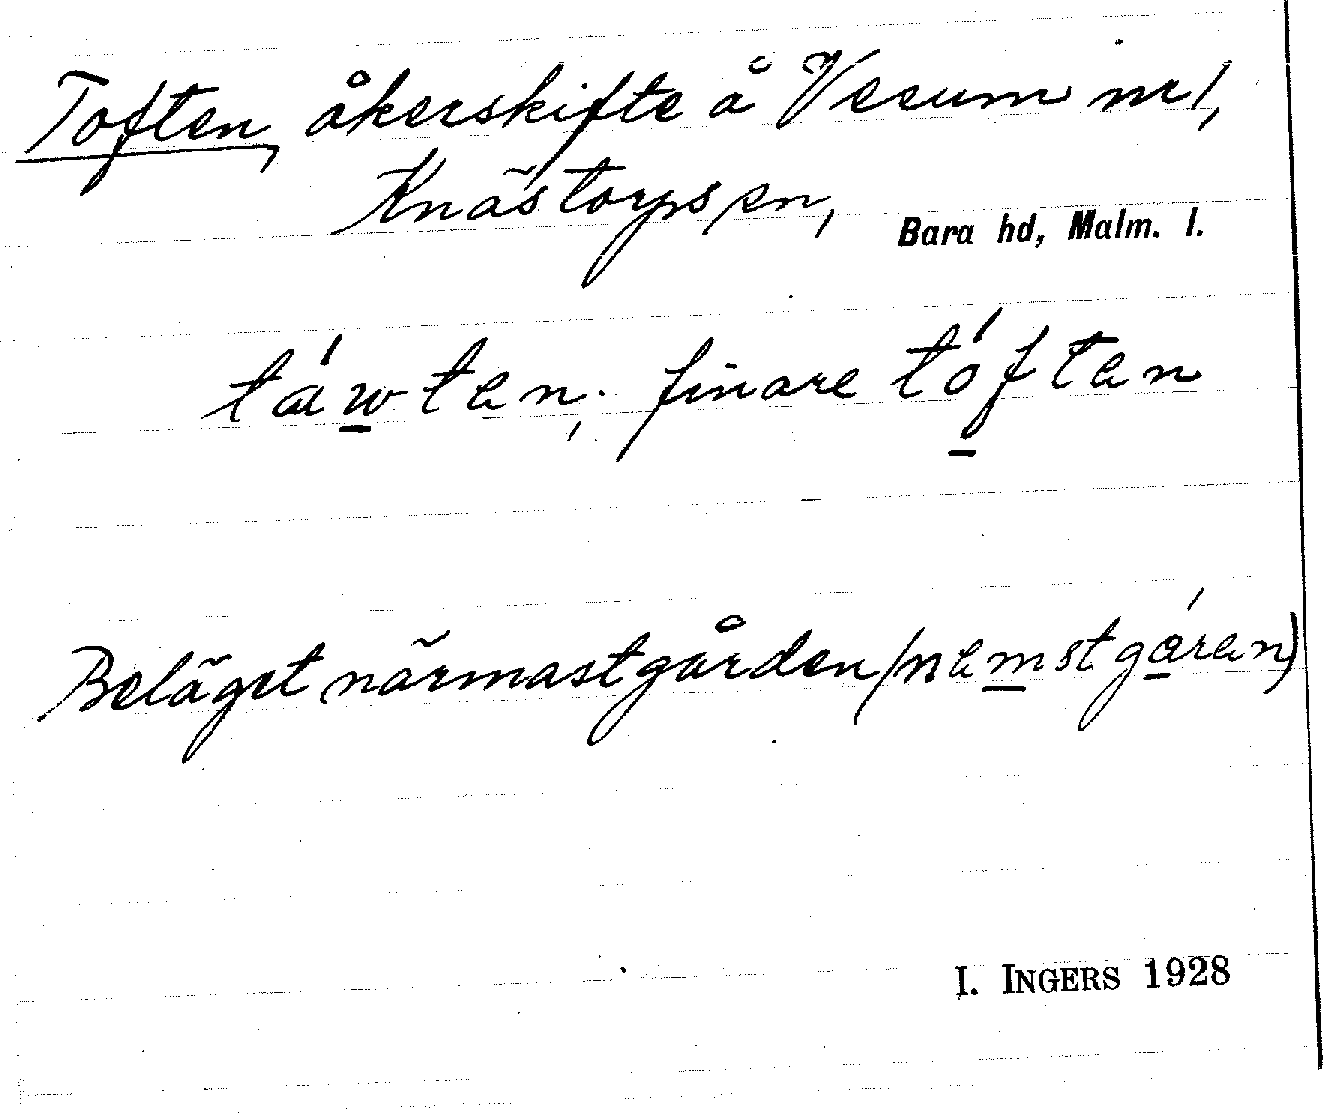 Toften, åkerskifte å Vesum nr 1,
Knästorps sn, Bara hd, Malm. l.
táwten; finare tóften
Beläget närmast gården (nemst gáren)
I. INGERS 1928